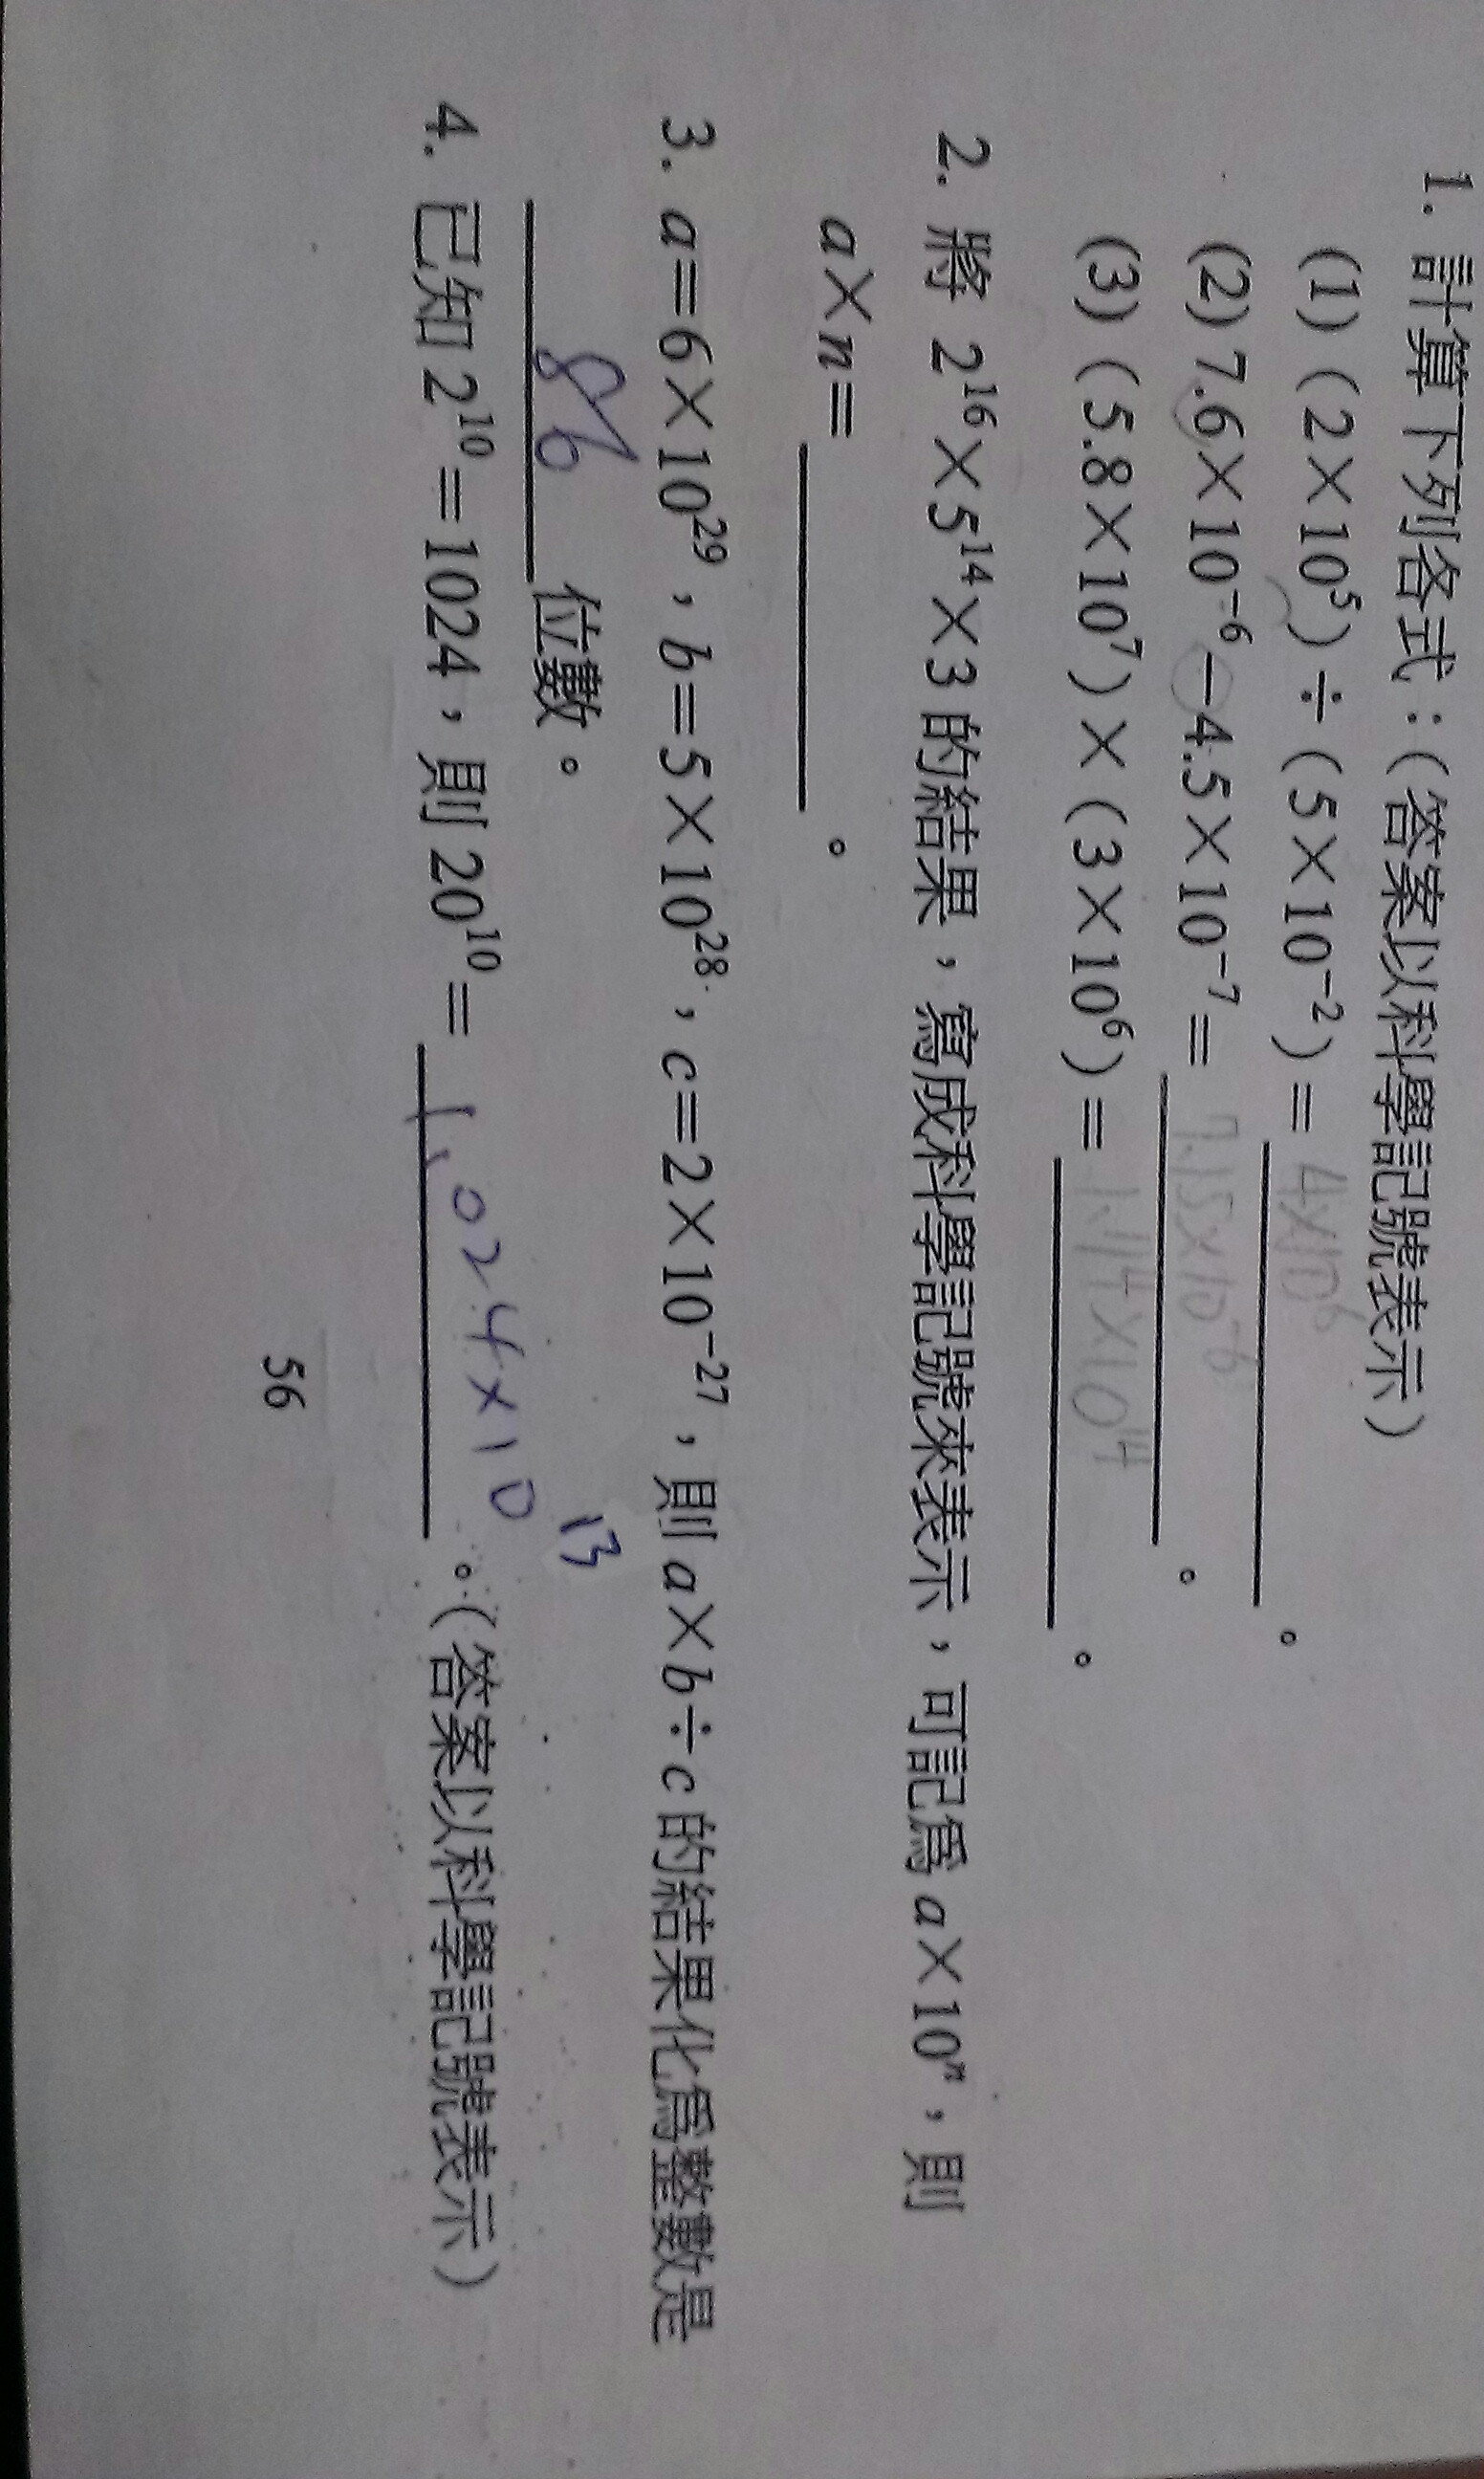 1. 計算下列各式：（答案以科學記號表示）
(1)（2×10⁵）÷（5×10⁻²）= 4×10⁶ 。
(2) 7.6×10⁻⁶－4.5×10⁻⁷= 7.15×10⁻⁶ 。
(3)（5.8×10⁷）×（3×10⁶）= 1.74×10¹⁴ 。
2. 將 2¹⁶×5¹⁴×3 的結果，寫成科學記號來表示，可記為 a×10ⁿ，則
a×n= 。
3. a=6×10²⁹，b=5×10²⁸，c=2×10⁻²⁷，則 a×b÷c 的結果化為整數是
86 位數。
4. 已知 2¹⁰=1024，則 20¹⁰= 1.024×10¹³ 。（答案以科學記號表示）
56